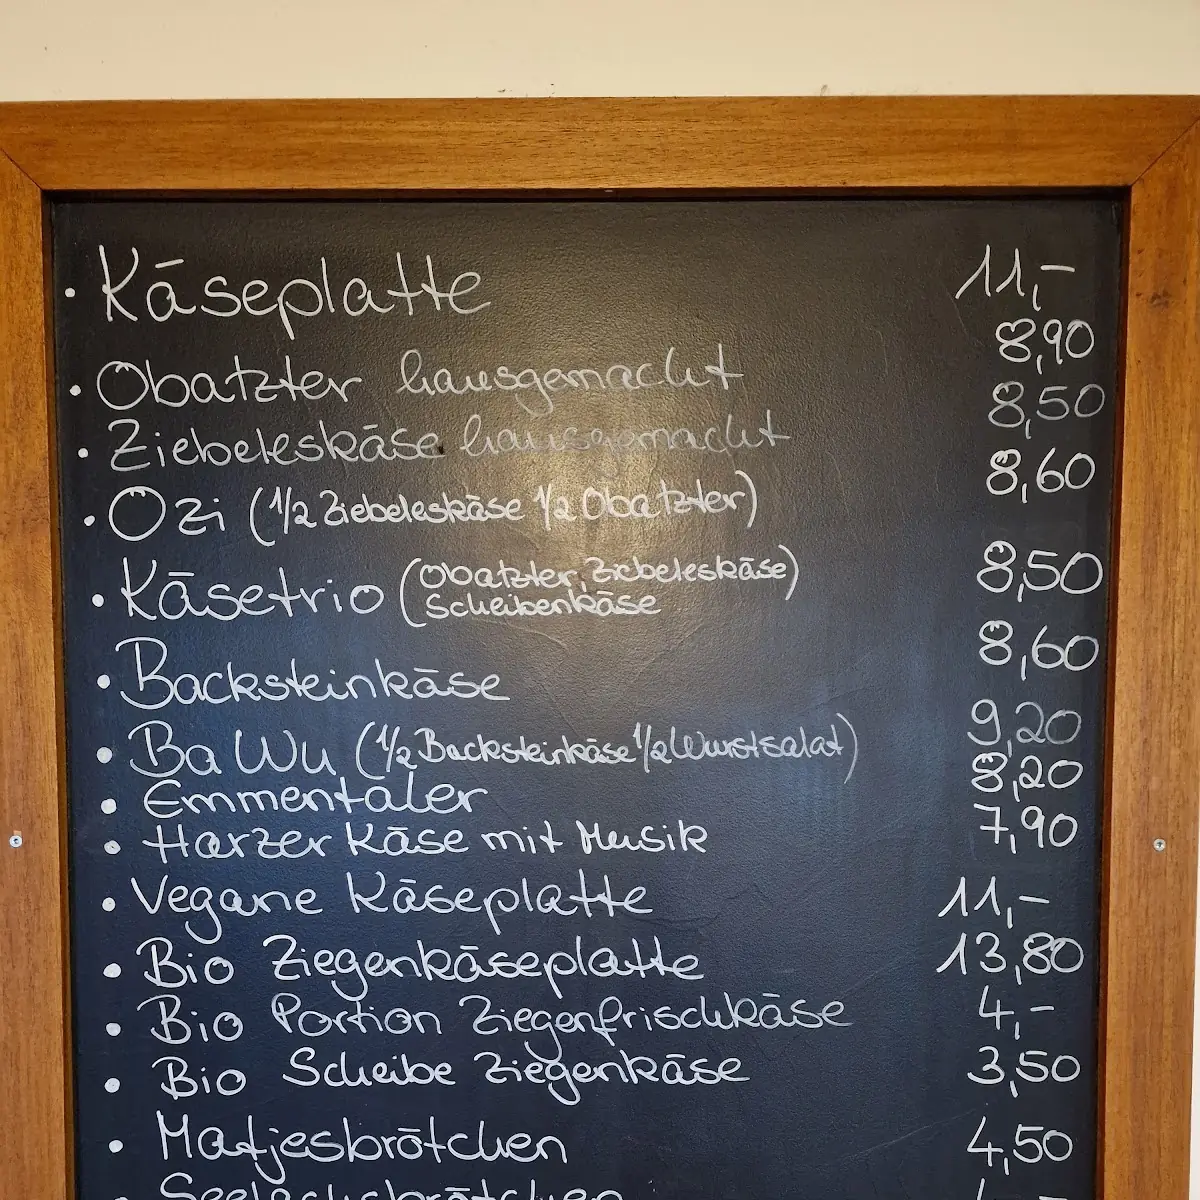 · Käseplatte 11,-
· Obatzter hausgemacht 8,90
· Ziebeleskäse hausgemacht 8,50
· Ozi (1/2 Ziebeleskäse 1/2 Obatzter) 8,60
· Käsetrio (Obatzter, Ziebeleskäse) 8,50
Scheibenkäse
· Backsteinkäse 8,60
· Ba Wu (1/2 Backsteinkäse 1/2 Wurstsalat) 9,20
· Emmentaler 8,20
· Harzer Käse mit Musik 7,90
· Vegane Käseplatte 11,-
· Bio Ziegenkäseplatte 13,80
· Bio Portion Ziegenfrischkäse 4,-
· Bio Scheibe Ziegenkäse 3,50
· Matjesbrötchen 4,50
· Seelachsbrötchen